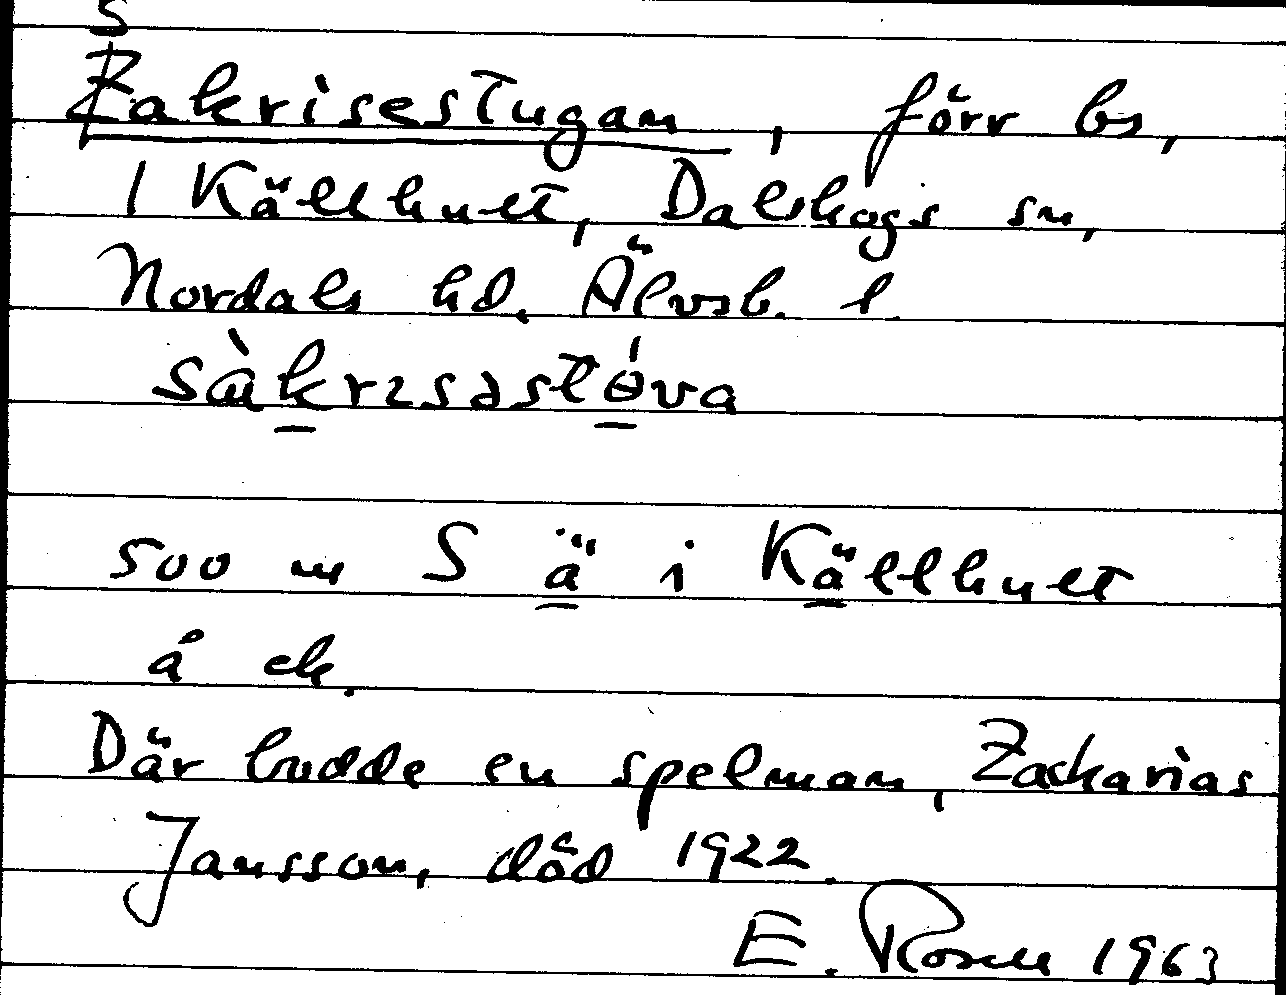 S
Zakrisestugan, förr bs,
1 Källhult, Dalskogs sn,
Nordals hd. Älvsb. l.
sàkrısəstǿva
500 m S ä i Källhult
å ek.
Där bodde en spelman, Zackarias
Jansson, död 1922.
E. Rosell 1963